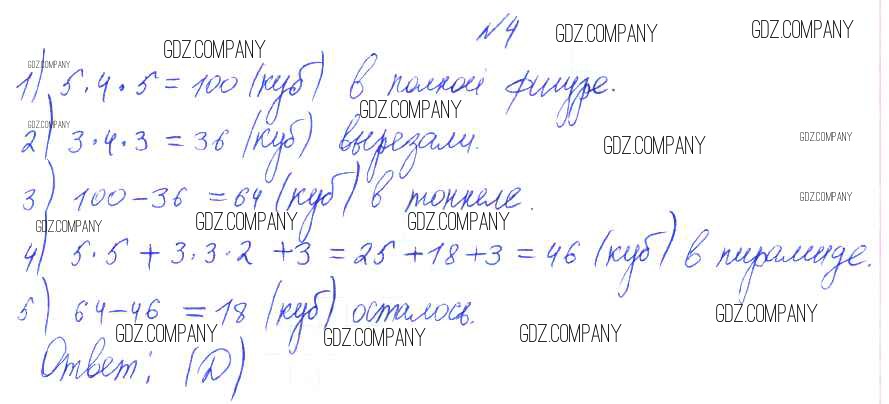 №4
GDZ.COMPANY GDZ.COMPANY GDZ.COMPANY
GDZ.COMPANY
1) 5·4·5=100 (куб) в полной фигуре.
GDZ.COMPANY
GDZ.COMPANY
2) 3·4·3=36 (куб) вырезали.
GDZ.COMPANY GDZ.COMPANY
3) 100-36=64 (куб) в тоннеле.
GDZ.COMPANY
GDZ.COMPANY GDZ.COMPANY GDZ.COMPANY
4) 5·5+3·3·2+3=25+18+3=46 (куб) в пирамиде.
5) 64-46=18 (куб) осталось.
GDZ.COMPANY
GDZ.COMPANY GDZ.COMPANY GDZ.COMPANY
Ответ: (Д)